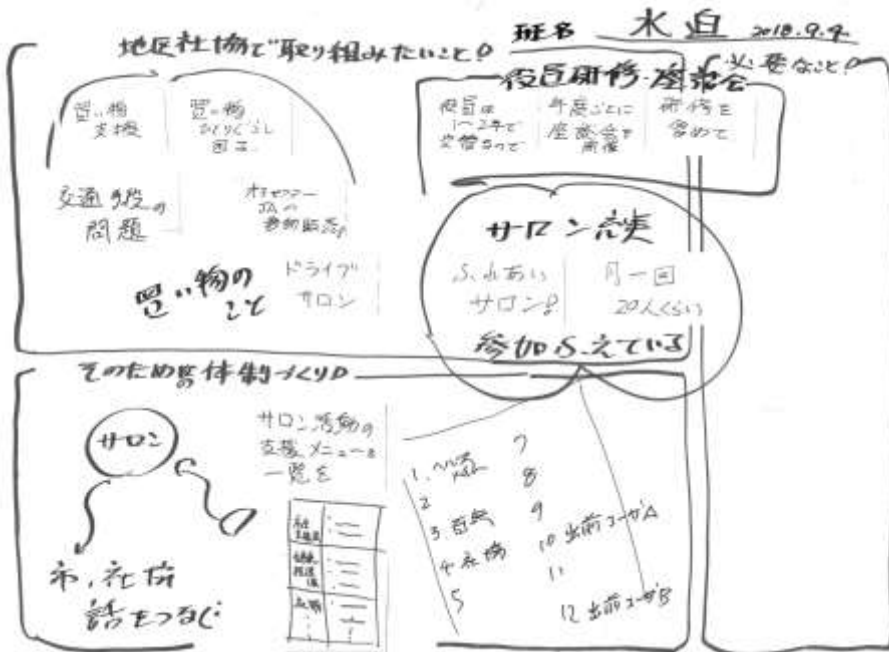 班名 水迫 2018.9.9.
地区社協で取り組みたいこと！
買い物
支援
買い物
ひとりぐらし
困る
交通手段の
問題
JAの
移動販売
買い物の
こと
ドライブ
サロン
役員研修・座談会
役員は
1〜2年で
交替なので
年度ごとに
座談会を
開催
研修を
含めて
必要なこと！
サロン充実
ふれあい
サロン！
月一回
20人くらい
参加ふえている
そのための体制づくり！
サロン
市、社協
話をつなぐ
サロン活動の
支援メニューを
一覧を
社協
1. ヘルス
2
3.
4. 社協
5
7
8
9
10 出前コーザA
11
12 出前コーザB